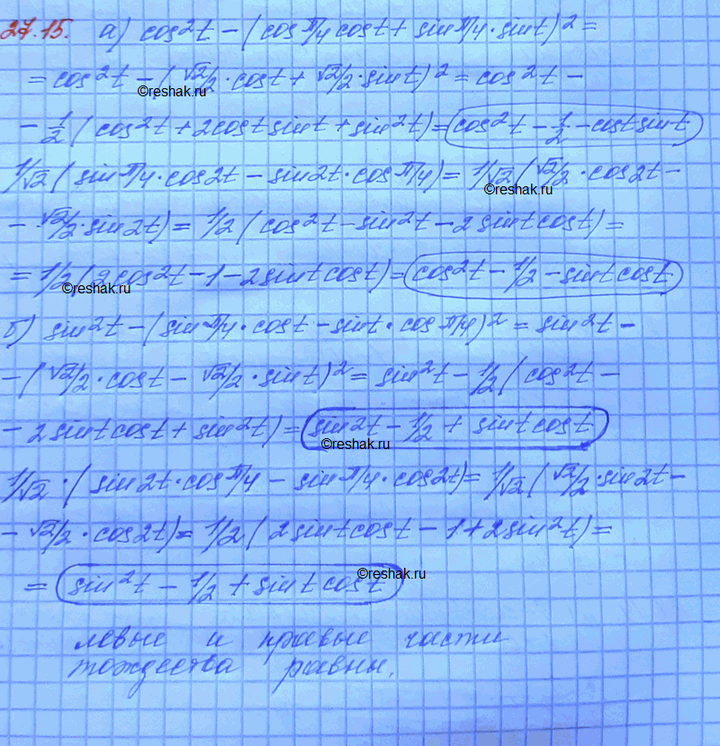 27.15. а) cos²t - (cos π/4 cost + sin π/4 · sint)² =
= cos²t - (√2/2 · cost + √2/2 · sint)² = cos²t -
©reshak.ru
- 1/2 (cos²t + 2cost sint + sin²t) = cos²t - 1/2 - cost sint
1/√2 (sin π/4 · cos2t - sin2t · cos π/4) = 1/√2 (√2/2 · cos2t -
©reshak.ru
- √2/2 · sin2t) = 1/2 (cos²t - sin²t - 2sintcost) =
= 1/2 (2cos²t - 1 - 2sintcost) = cos²t - 1/2 - sintcost
©reshak.ru
б) sin²t - (sin π/4 · cost - sint · cos π/4)² = sin²t -
- (√2/2 · cost - √2/2 · sint)² = sin²t - 1/2 (cos²t -
- 2sintcost + sin²t) = sin²t - 1/2 + sintcost
©reshak.ru
1/√2 · (sin2t · cos π/4 - sin π/4 · cos2t) = 1/√2 (√2/2 · sin2t -
- √2/2 · cos2t) = 1/2 (2sintcost - 1 + 2sin²t) =
= sin²t - 1/2 + sintcost
©reshak.ru
левые и правые части
тождества равны.